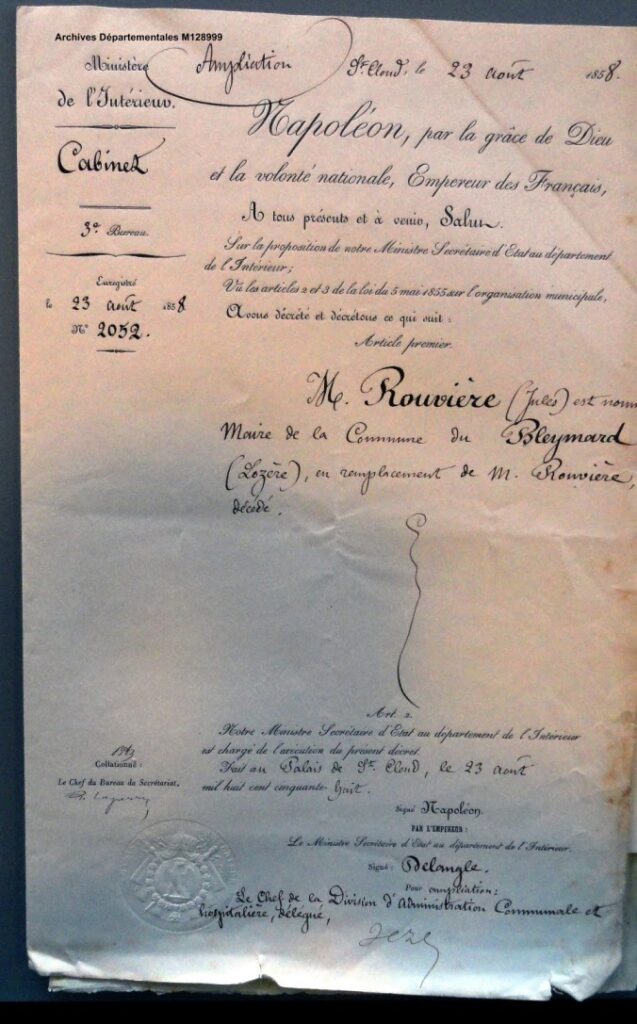 Archives Départementales M128999
Ministère
de l'Intérieur.
Cabinet
3e Bureau.
Enregistré
le 23 août 1858
No 2052.
Ampliation
St Cloud, le 23 août 1858.
Napoléon, par la grâce de Dieu
et la volonté nationale, Empereur des Français,
A tous présents et à venir, Salut.
Sur la proposition de notre Ministre Secrétaire d'Etat au département
de l'Intérieur;
Vu les articles 2 et 3 de la loi du 5 mai 1855 sur l'organisation municipale,
Avons décrété et décrétons ce qui suit :
Article premier.
M. Rouvière (Jules) est nom
Maire de la Commune du Bleymard
(Lozère), en remplacement de M. Rouvière,
décédé.
Art. 2.
Notre Ministre Secrétaire d'Etat au département de l'Intérieur
est chargé de l'exécution du présent décret.
Fait au Palais de St Cloud, le 23 août
mil huit cent cinquante-huit.
Signé Napoléon.
PAR L'EMPEREUR :
Le Ministre Secrétaire d'Etat au département de l'Intérieur.
Signé : Delangle.
Pour ampliation :
Le Chef de la Division d'Administration Communale et
hospitalière, délégué,
Collationné :
Le Chef du Bureau du Secrétariat.